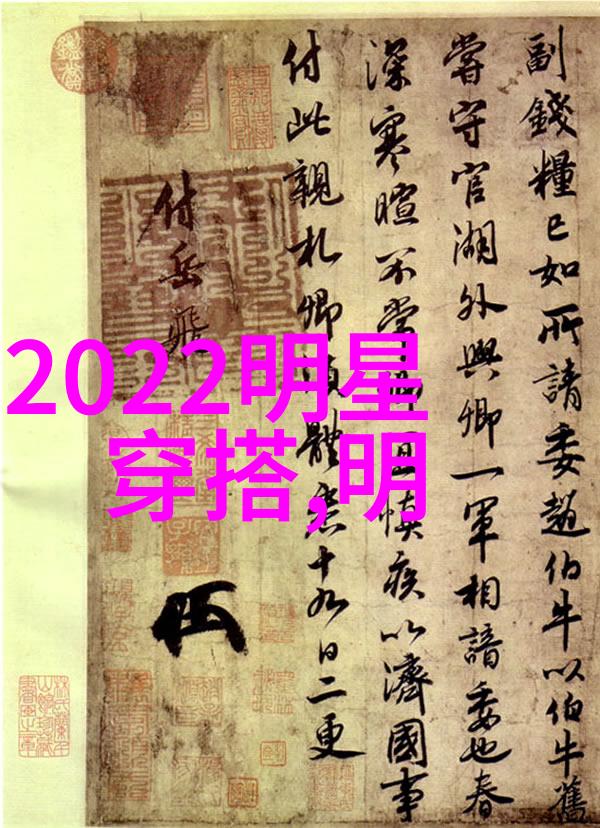 2022明星
穿搭,明
副錢糧已如所請委趙伯牛以伯牛舊
嘗守官湖外與卿一軍相諳委也春
深寒暄不常卿宜慎疾以濟國事
付此親札卿須體悉十九日二更
付岳飛